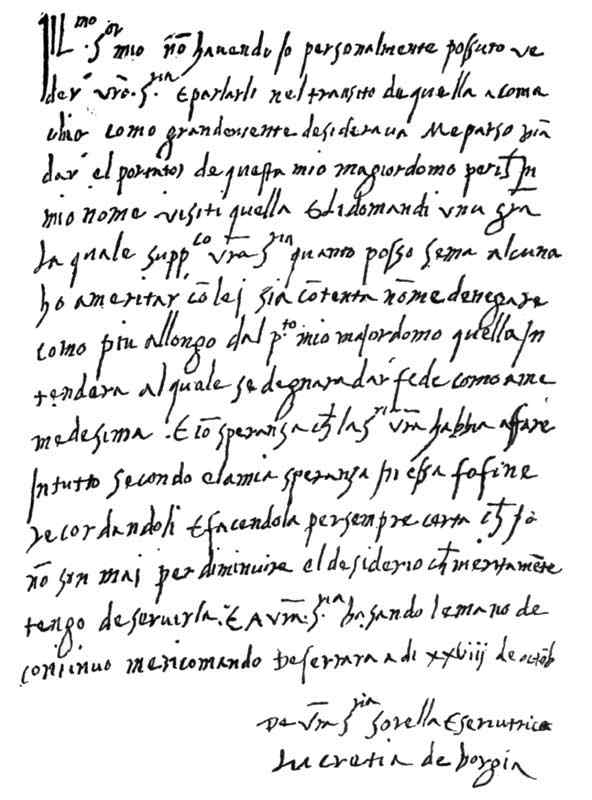 Ill.mo S.or mio nō hauendo Io personalmente possuto ve
der vrā. S.ria E parlarli nel transito de quella a coma
chio como grandemente desideraua Me parso
dar el
mio nome visiti quella E li domandi vna gra
la quale supp.co vrā S.ria quanto posso se ma alcuna
ho a meritar cō lej sia cōtenta nō me denegare
como piu allongo dal p.to mio majordomo quella In
tendera al quale se degnara dar fede como a me
medesima . E cō speranza la S.ria vrā habbia affare
In tutto secondo e la mia speranza In essa fo fine
recordandoli E facendola per sempre certa Io
nō son maj per diminuire el desiderio meritamēte
tengo de seruirla . E A vrā. S.ria basando le mano de
continuo me ricomando De ferrara a di xxviij de octob
De vrā S.ria sorella E seruitrice
Lucretia de borgia